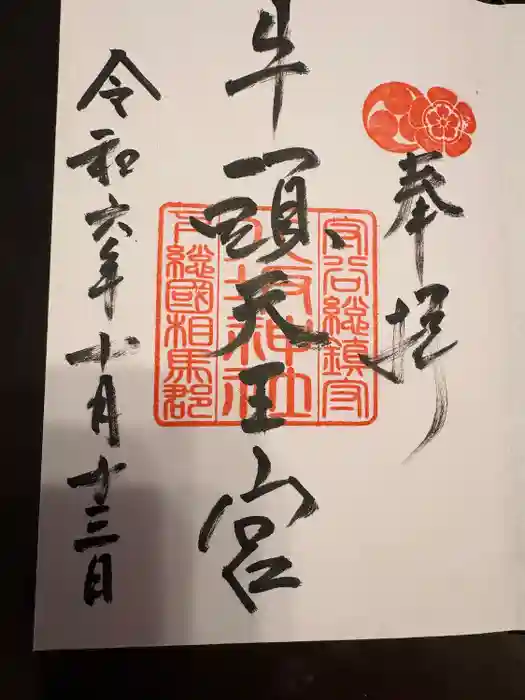 奉拝
牛頭天王宮
令和六年十月十三日
守谷総鎮守
八坂神社
下総國相馬郡